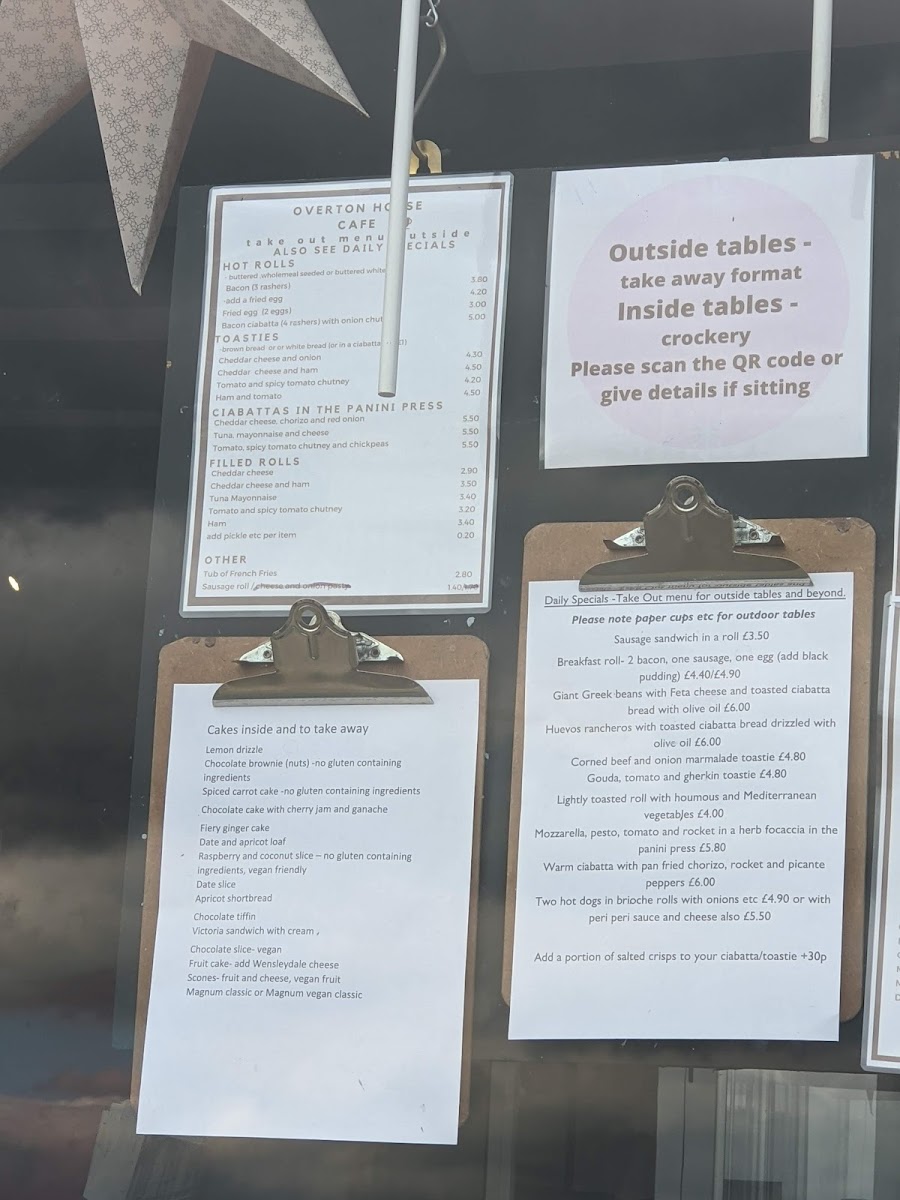 OVERTON HO SE
CAFE
take out menu utside
ALSO SEE DAILY ECIALS
HOT ROLLS
- buttered ,wholemeal seeded or buttered white
Bacon (3 rashers) 3.80
-add a fried egg 4.20
Fried egg (2 eggs) 3.00
Bacon ciabatta (4 rashers) with onion chut 5.00
TOASTIES
-brown bread or or white bread (or in a ciabatta
Cheddar cheese and onion 4.30
Cheddar cheese and ham 4.50
Tomato and spicy tomato chutney 4.20
Ham and tomato 4.50
CIABATTAS IN THE PANINI PRESS
Cheddar cheese, chorizo and red onion 5.50
Tuna, mayonnaise and cheese 5.50
Tomato, spicy tomato chutney and chickpeas 5.50
FILLED ROLLS
Cheddar cheese 2.90
Cheddar cheese and ham 3.50
Tuna Mayonnaise 3.40
Tomato and spicy tomato chutney 3.20
Ham 3.40
add pickle etc per item 0.20
OTHER
Tub of French Fries 2.80
Sausage roll /cheese and onion pasty 1.40
Outside tables -
take away format
Inside tables -
crockery
Please scan the QR code or
give details if sitting
Cakes inside and to take away
Lemon drizzle
Chocolate brownie (nuts) -no gluten containing
ingredients
Spiced carrot cake -no gluten containing ingredients
Chocolate cake with cherry jam and ganache
Fiery ginger cake
Date and apricot loaf
Raspberry and coconut slice – no gluten containing
ingredients, vegan friendly
Date slice
Apricot shortbread
Chocolate tiffin
Victoria sandwich with cream ,
Chocolate slice- vegan
Fruit cake- add Wensleydale cheese
Scones- fruit and cheese, vegan fruit
Magnum classic or Magnum vegan classic
Daily Specials -Take Out menu for outside tables and beyond.
Please note paper cups etc for outdoor tables
Sausage sandwich in a roll £3.50
Breakfast roll- 2 bacon, one sausage, one egg (add black
pudding) £4.40/£4.90
Giant Greek beans with Feta cheese and toasted ciabatta
bread with olive oil £6.00
Huevos rancheros with toasted ciabatta bread drizzled with
olive oil £6.00
Corned beef and onion marmalade toastie £4.80
Gouda, tomato and gherkin toastie £4.80
Lightly toasted roll with houmous and Mediterranean
vegetables £4.00
Mozzarella, pesto, tomato and rocket in a herb focaccia in the
panini press £5.80
Warm ciabatta with pan fried chorizo, rocket and picante
peppers £6.00
Two hot dogs in brioche rolls with onions etc £4.90 or with
peri peri sauce and cheese also £5.50
Add a portion of salted crisps to your ciabatta/toastie +30p